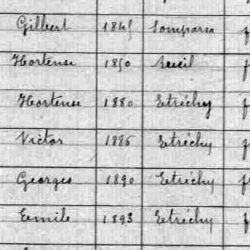 Gilbert 1845 Somparse f
Hortense 1850 f
Hortense 1880 Etréchy f
Victor 1886 Etréchy f
Georges 1890 Etréchy f
Emile 1893 Etréchy f